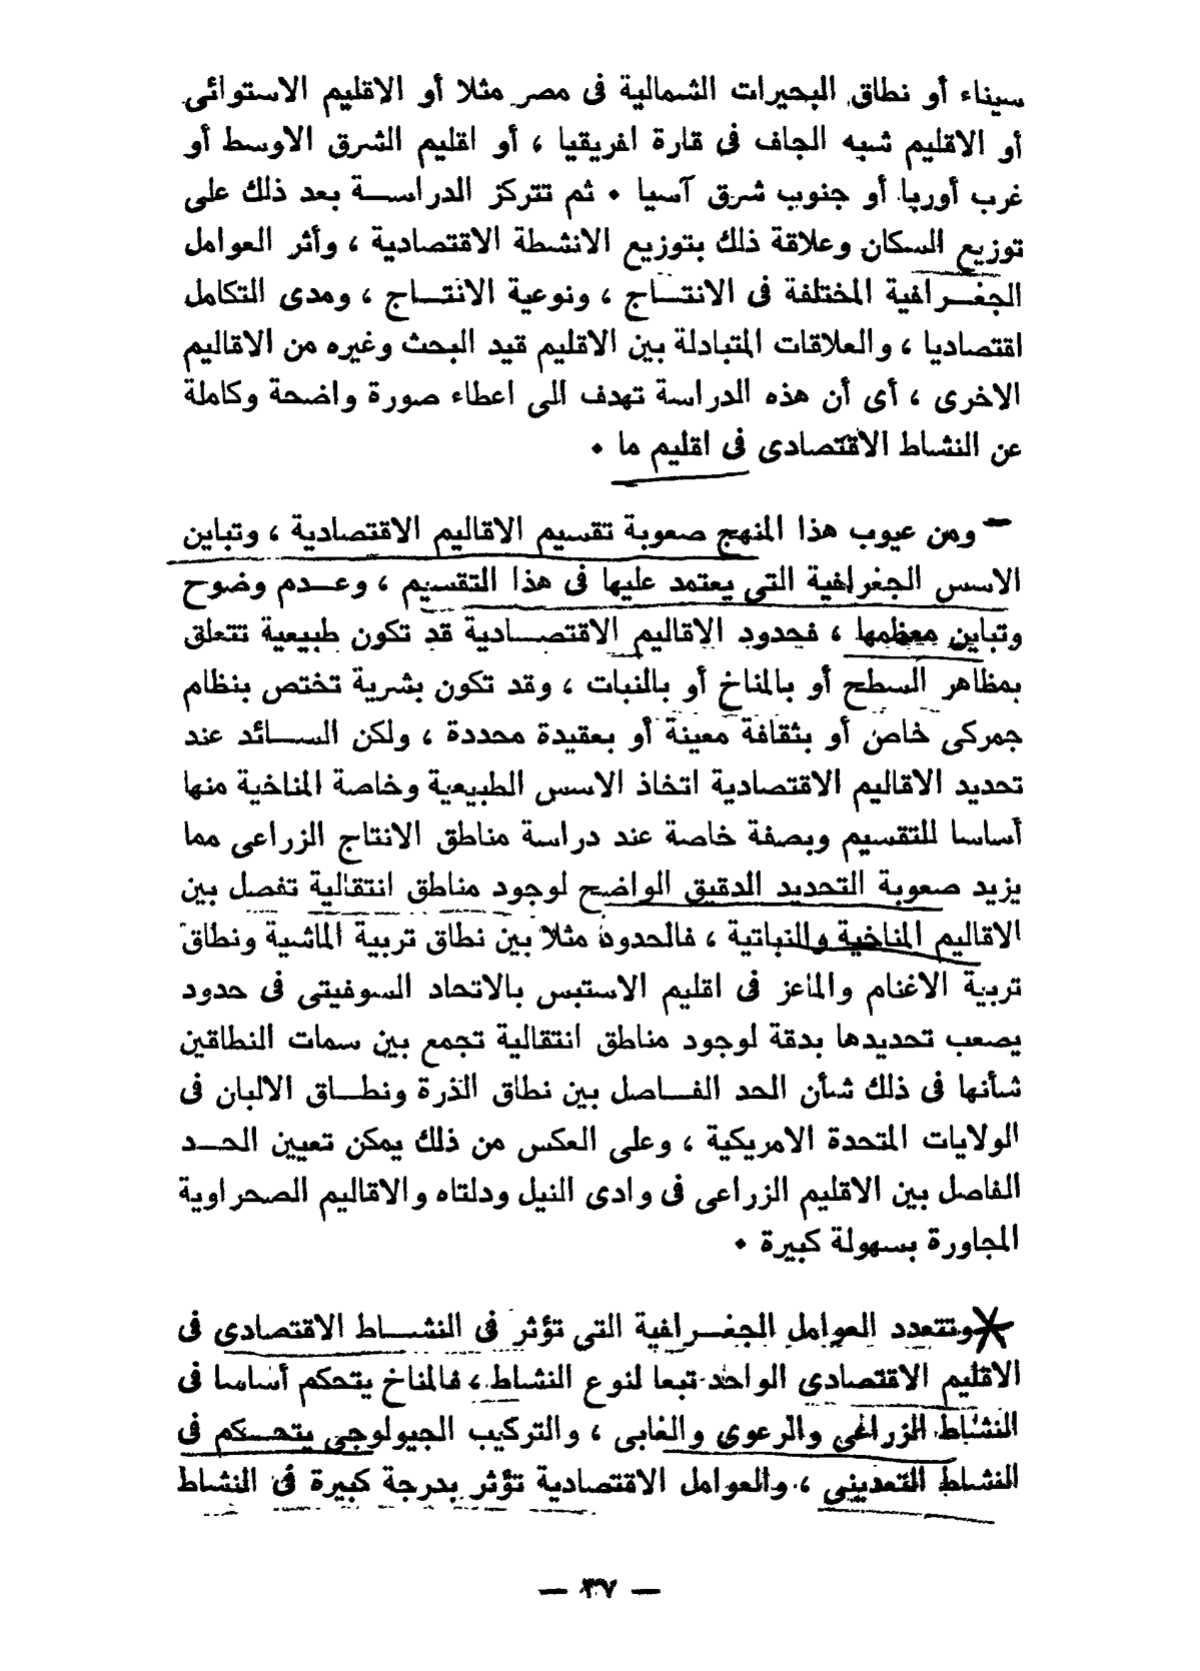 سيناء أو نطاق البحيرات الشمالية فى مصر مثلا أو الاقليم الاستوائى
أو الاقليم شبه الجاف فى قارة افريقيا ، أو اقليم الشرق الاوسط أو
غرب أوربا أو جنوب شرق آسيا ٠ ثم تتركز الدراســة بعد ذلك على
توزيع السكان وعلاقة ذلك بتوزيع الانشطة الاقتصادية ، وأثر العوامل
الجغــرافية المختلفة فى الانتــاج ، ونوعية الانتــاج ، ومدى التكامل
اقتصاديا ، والعلاقات المتبادلة بين الاقليم قيد البحث وغيره من الاقاليم
الاخرى ، أى أن هذه الدراسة تهدف الى اعطاء صورة واضحة وكاملة
عن النشاط الاقتصادى فى اقليم ما ٠
– ومن عيوب هذا المنهج صعوبة تقسيم الاقاليم الاقتصادية ، وتباين
الاسس الجغرافية التى يعتمد عليها فى هذا التقسيم ، وعــدم وضوح
وتباين معظمها ، فحدود الاقاليم الاقتصــادية قد تكون طبيعية تتعلق
بمظاهر السطح أو بالمناخ أو بالنبات ، وقد تكون بشرية تختص بنظام
جمركى خاص أو بثقافة معينة أو بعقيدة محددة ، ولكن الســائد عند
تحديد الاقاليم الاقتصادية اتخاذ الاسس الطبيعية وخاصة المناخية منها
أساسا للتقسيم وبصفة خاصة عند دراسة مناطق الانتاج الزراعى مما
يزيد صعوبة التحديد الدقيق الواضح لوجود مناطق انتقالية تفصل بين
الاقاليم المناخية والنباتية ، فالحدود مثلا بين نطاق تربية الماشية ونطاق
تربية الاغنام والماعز فى اقليم الاستبس بالاتحاد السوفيتى فى حدود
يصعب تحديدها بدقة لوجود مناطق انتقالية تجمع بين سمات النطاقين
شأنها فى ذلك شأن الحد الفــاصل بين نطاق الذرة ونطــاق الالبان فى
الولايات المتحدة الامريكية ، وعلى العكس من ذلك يمكن تعيين الحــد
الفاصل بين الاقليم الزراعى فى وادى النيل ودلتاه والاقاليم الصحراوية
المجاورة بسهولة كبيرة ٠
وتتعدد العوامل الجغــرافية التى تؤثر فى النشــاط الاقتصادى فى
الاقليم الاقتصادى الواحد تبعا لنوع النشاط ، فالمناخ يتحكم أساسا فى
النشاط الزراعى والرعوى والغابى ، والتركيب الجيولوجى يتحــكم فى
النشاط التعدينى ، والعوامل الاقتصادية تؤثر بدرجة كبيرة فى النشاط
— ٣٧ —